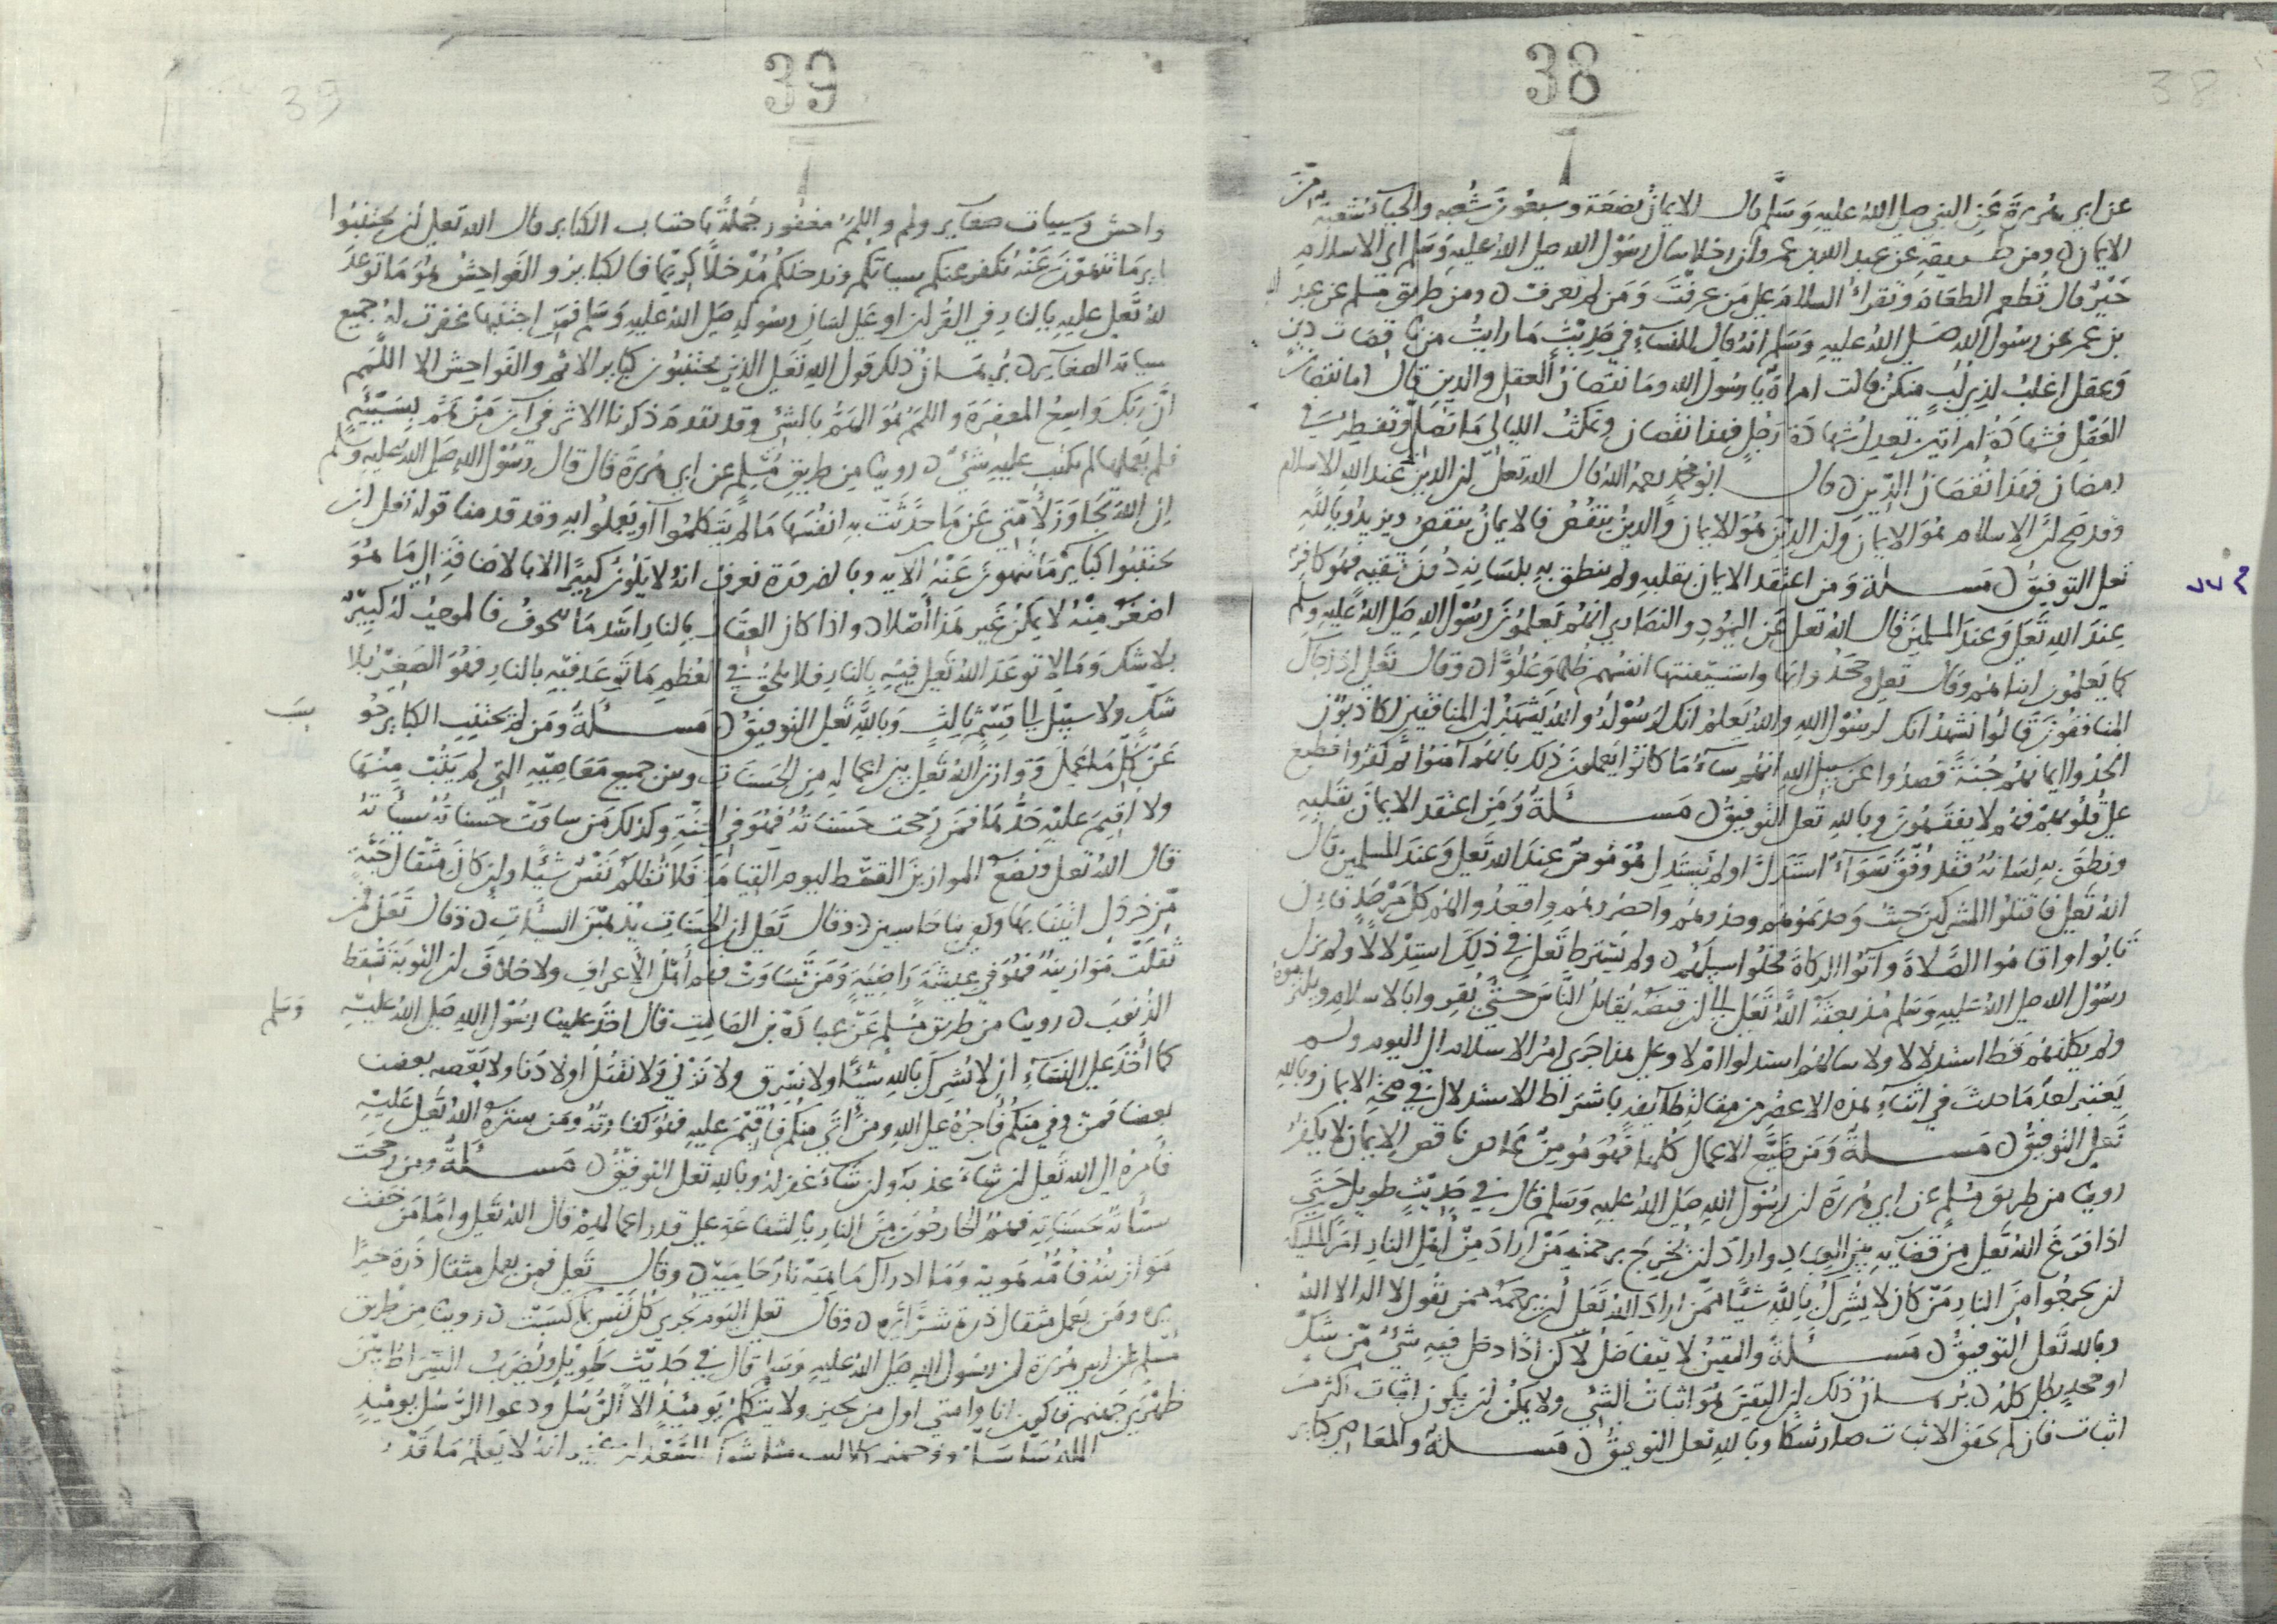 38
عن ابي هُريرةَ عَنِ النبي صلى الله عليهِ وَسَلَّم قال الايمانُ بضعَة وسبعُونَ شُعبه والحيآءُ شعبَة مِنَ
الايمان ومن طريقهِ عَن عبد الله بن عمرو ان رجلا سَال رسُوْل الله صلى اللهُ عليهِ وَسَلم اي الاسلامِ
خَيْرٌ قال تُطعم الطعَام وَتقرأُ السلامَ على مَن عرفتَ وَمَن لم تعرفْ ومن طريق مسلم عن عبد الله
بن عمر عَن رسُول الله صلى اللهُ عليهِ وَسَلم انهُ قال للنسَآء في حَدِيْثٍ مَا رايتُ من ناقصَات دين
وَعقل اغلبَ لذِي لُبٍ منكنَّ قالت امراةٌ يا رسُول الله ومَا نقصَانُ العقل والدين قال اما نقصَانُ
العَقل فشهادَةُ امراتين تعدل شهادَة رَجُلٍ فهذا نقصَان وتمكثُ الليالي مَا تصَلِّي وَتفطِرُ في
رمضَان فهَذا نقصَانُ الدِّين قال ابو محمد رحمهُ اللهُ قال الله تعلى ان الدينَ عندَ الله الاسلام
وقد صَح انَّ الاسلام هُوَ الايمان وَان الدينَ هُوَ الايمان وَالدينُ ينقُصُ فالايمانُ ينقصُ ويزيدُ وبالله
تعلى التوفيقُ مَسئلة وَمَن اعتقَدَ الايمان بقلبهِ ولم ينطق بهِ بلسَانِهِ دُونَ تقيهٍ فهُو كافرٌ
عِندَ اللهِ تَعلى وَعندَ المسلمينَ قال اللهُ تعلى عَن اليهُودِ والنصَارى انهُم يَعلمُونَ رسُوْل اللهِ صلى اللهُ عليهِ وسلم
كما يَعلمُون ابنا هُم وقال تَعلى وجحَدُوا بها واستيقنتها انفسُهم ظُلمًا وَعُلُوًّا وقال تعلى اذا جآك
المنافقُونَ قالُوا نشهدُ انك لرسُوْلُ اللهِ واللهُ يَعلمُ انكَ لرَسُوْلُهُ واللهُ يَشهَدُ ان المنافقين لكاذبُوْن
اتخذُوا ايمانهُم جُنَّةً فصدُوا عَن سَبيل اللهِ انهُم سَآءَ مَا كانُوا يَعملونَ ذلك بانهُم آمَنوا ثم كفرُوا فطبعَ
على قُلُوبهِمْ فهُم لا يفقهُونَ وبالله تعلى التوفيقُ مَسئلَةُ وَمَن اعتقَدَ الايمان بقلبِهِ
ونطقَ بهِ لسَانهُ فقد وُفقَ سَوَآءٌ استَدلَّ اولم يَستدِل هُوَ مُومنٌ عندَ الله تَعلى وَعندَ المسلمين قال
اللهُ تعلى فاقتلوُا المشركين حَيثُ وَجدتمُوهُم وخذوهُم واحصرُوهُم واقعدُوا لهُم كلَّ مَرْصَدٍ فان
تَابُوا واقامُوا الصَّلاةَ وآتوُا الزكاةَ فخلُوا سبيلَهُم ولم يَشترط تعلى في ذلِكَ استِدْلالًا ولم يزل
رسُوْل الله صلى اللهُ عَليهِ وَسَلم مُذ بعثهُ اللهُ تعلى الى ان قبضهُ يُقاتلُ الناسَ حَتى يُقروا بالاسلامِ ويلتزمُوهُ
ولم يكلفهُم قط استدلالا ولا سالهُم استدلوا امْ لا وعلى هذا جَرى امرُ الاسلام الى اليوم ولم
يَعتبر احدٌ مَا حدثَ في اثنآءِ هَذه الاعصُر من مقالةِ طآيفةٍ باشتراط الاستدلال في صحةِ الايمان وبالله
تَعلى التوفيقُ مَسئلةُ وَمَن ضيَّعَ الاعمال كُلها فهُوَ مُومِنٌ عَاصٍ ناقص الايمان لا يكفرُ
روينا من طريق مُسلم عن ابي هُرَيرَةَ ان رسُوْل اللهِ صلى اللهُ عليهِ وَسَلم قال في حَدِيْثٍ طويلٍ حَتَى
اذا فَرغَ اللهُ تعلى مِن قضآيهِ بَينَ العِبادِ وارادَ ان يُخرِجَ برحمتهِ مَنْ ارادَ مِن اهل النارِ امَرَ الملآيكة
ان يخرجُوا مِنَ النارِ مَن كان لا يُشرِكُ باللهِ شَيئًا ممن ارادَ اللهُ تعلى ان يرحمَهُ ممن يقُولُ لا اله الا اللهُ
وبالله تعلى التوفيقُ مَسئلةُ واليقينُ لا يتفاضلُ لاكن اذا دخل فيهِ شيْ من شَكٍّ
او جحدٍ بطل كلهُ بُرهانُ ذلك ان اليقينَ هُوَ اثباتُ الشيْ ولا يمكنُ ان يكون اثباتٌ اكثر من
اثبات فان لم يحقق الاثبات صَار شكًّا وبالله تعلى التوفيقُ مَسئلةُ والمعَاصي كبايرُ
39
واحش وَسيات صغآير ولمم واللممُ مغفور جُملةً باجتناب الكباير قال الله تعلى ان تجتنبُوا
باير مَا تنهَوْنَ عَنْهُ نكفر عنكم سياتكم وندخلكمُ مُدْخلًا كريمًا فالكبايرُ والفَواحِشُ هُوَ مَا توعدَ
للهُ تعلى عليهِ بالنار في القُران او على لسَانِ رسُولهِ صَلى اللهُ عليهِ وَسَلم فمَن اجتنبها غفرت لهُ جميعُ
سياته الصغآير بُرهَانُ ذلك قول اللهِ تعلى الذين يجتنبُون كبايرَ الاثم والفوَاحِشَ الا اللَّمَم
انَّ ربَّكَ وَاسعُ المغفِرَةِ واللمَمُ هُوَ الهَمُّ بالشيْ وقد تقدمَ ذكرنا الاثر في ان مَنْ هَمَّ بِسَيّئةٍ
فلم يَعملها لم يكتب عليهِ شئٌ روينا مِن طريقِ مُسلم عن ابي هُريرَة قال قال رسُوْل اللهِ صلى اللهُ عليهِ وسلم
ان اللهَ تجاوَزَ لأُمَّتي عَن مَا حدَّثت بهِ انفُسَها مَا لم يَتكلمُوا او يَعملوا بهِ وقد قدمنا قوله تعلى ان
تجتنبُوا كبايَر مَا تنهَونَ عَنْهُ الآيه وبالضرُورَة نعرفُ انهُ لا يَكونُ كبيرًا الا بالاضافةِ الى مَا هُوَ
اصْغَرُ مِنْهُ لا يمكنُ غير هَذا أصلا واذا كان العقَاب بالنارِ اشد مَا يُخوفُ فالموجبُ لهُ كبيرٌ
بلا شكٍ وَمَا لا توعَدَ اللهُ تعلى فيهِ بالنارِ فلا يلحقُ في العُظمِ مَا توعدَ فيهِ بالنار فهُوَ الصَغيرُ بلا
شكٍ ولا سبيْلَ الى قسْمٍ ثالثٍ وَباللهِ تَعلى التوفيقُ مَسئلةُ وَمَن لم يجتنب الكباير حُو
سِبَ
عَن كلِ مَا عملَ وَوازنَ اللهُ تَعلى بين اعمالهِ مِن الحَسنَاتِ وبين جميع مَعَاصِيْهِ التي لم يَتُبْ مِنهَا
ولا اقيمَ عليْهِ حَدُّهَا فمَن رَجحت حَسَناتهُ فهُوَ في الجنّةِ وكذلك مَن سَاوَت حسناتُهُ سيأتهُ
قال اللهُ تعلى ونضعُ الموازينَ القسْط ليوم القيامَة فلا تُظلمُ نَفْسٌ شيًا وان كانَ مثقالَ حَبَّةٍ
من خردَلٍ اتينا بها وكفى بنا حَاسبين وقال تَعلى ان الحسنات يُذهبْنَ السيّأت وقال تَعلى مَن
ثقلتْ مَوازينُهُ فهُوَ في عيشةٍ رَاضِيَةٍ وَمَن تسَاوَتْ فهُم أهْلُ الأعرافِ ولا خلافَ ان التوبةَ تسقط
الذنوبَ روينا من طريق مُسلم عَن عبادَةَ بن الصَامِتِ قال اخذ علينا رسُوْل اللهِ صلى اللهُ عليهِ وَسَلم
كما أَخذَ على النسَآءِ ان لا نُشركَ باللهِ شيْئًا ولا نسْرقَ ولا نَزْني ولا نقتُلَ اولادَنا ولا يَعضه بعضنا
بعضا فمن وفى منكُم فأجرُهُ على اللهِ ومن أتى منكم حدا فأُقيْمَ عليهِ فهُوَ كفارتهُ ومَن سترهُ اللهُ تعلى عَليْهِ
فأمرُهُ الى الله تعلى ان شآءَ عذبهُ وان شآءَ غفر لهُ وبالله تعلى التوفيقُ مَسئلةُ ومن رجحَت
سيأتهُ بحَسَناتِهِ فهُمُ الخارجُونَ منَ النارِ بالشفاعَةِ على قدر اعمالِهِمْ قال اللهُ تَعلى وامَّا مَن خفت
مَوازينُهُ فأُمُّهُ هَاوية وَمَا ادراك مَاهيَهْ نارٌ حَاميَهٌ وقال تَعلى فمن يعمل مثقال ذَرة خيرًا
يره ومَن يَعمل مثقال ذرة شرًّا يَره وقال تعلى اليَوم تجزى كُلُ نَفسٍ بمَا كسَبَت روينا مِن طريق
مُسلم عَن ابي هُريْرة ان رسُول اللهِ صلى اللهُ عليهِ وَسَلم قال في حَدِيْث طويْلٍ ويُضربُ الصِّرَاطُ بَيْنَ
ظهْرَي جَهنم فأكونُ انا وامتي اول من يجيز ولا يتكلمُ يومَئذٍ الا الرُّسُلُ وَدعوَا الرُّسُل يومئِذٍ
اللهُمَّ سَلم سَلم وفي جهنم كلاليب مثل شوك السَّعْدان غير انهُ لا يَعلمُ مَا قَدْرُ